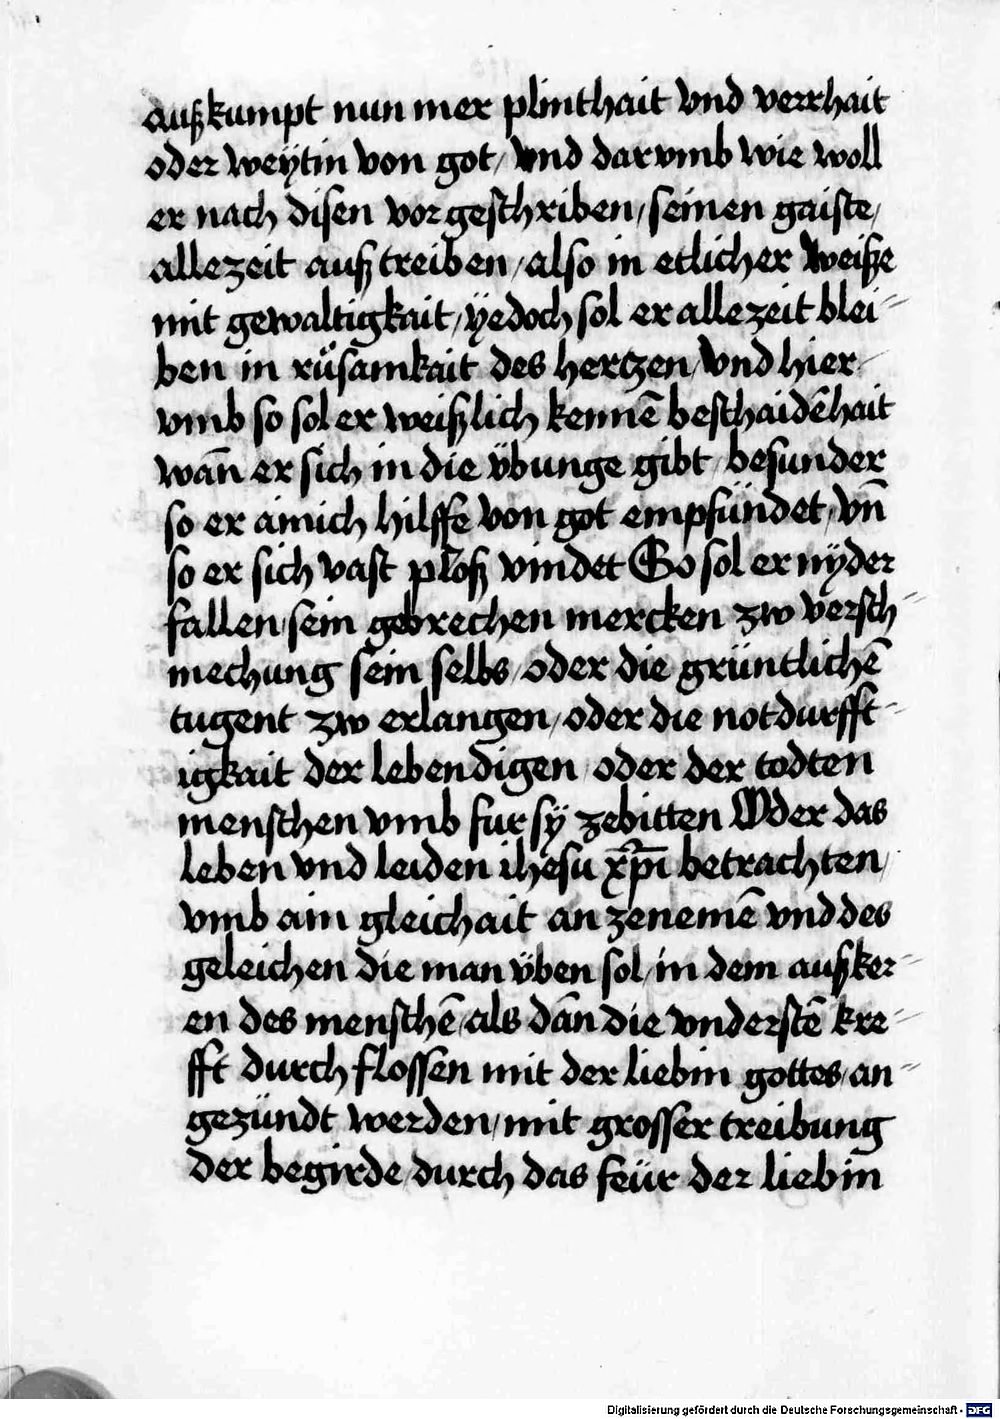 außkumpt nun mer plinthait vnd verrhait
oder weÿtin von got/ vnd darvmb wie woll
er nach disen vorgeschriben/ seinen gaiste/
allezeit auß treiben/ also in etlicher weiße
mit gewaltigkait/ ÿedoch sol er allezeit blei⸗
ben in rüsamkait des hertzen/ vnd hier⸗
vmb so sol er weißlich kennē beschaidēhait
wan̄ er sich in die v̈bunge gibt/ besunder
so er ainich hilffe von got empfündet/ vn̄
so er sich vast ploß vindet So sol er nÿder
fallen/ sein gebrechen mercken zw versch⸗
mechung sein selbs/ oder die grüntlichē
tugent zw erlangen/ oder die notdurfft⸗
igkait der lebendigen/ oder der todten
menschen vmb fur sÿ zebitten Oder das
leben vnd leiden ihesu xp̄i betrachten/
vmb ain gleichait an zenemē vnd des
geleichen die man v̈ben sol/ in dem außker⸗
en des menschē/ als dan̄ die vnderstē kre⸗
fft durch flossen mit der liebin gottes/ an⸗
gezündt werden/ mit grosser treibung
der begirde/ durch das feür der liebin
Digitalisierung gefördert durch die Deutsche Forschungsgemeinschaft - DFG